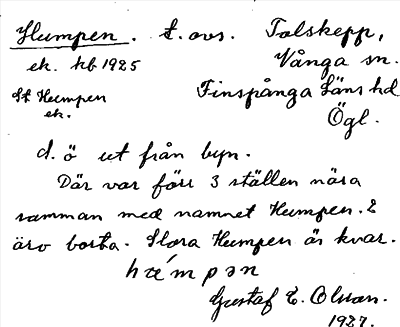 Humpen. t. avs. Tolskepp,
ek. kb 1925 Vånga sn.
St Humpen Finspånga Läns hd
ek. Ögl.
d. ö ut från byn.
Där var förr 3 ställen nära
samman med namnet Humpen. 2
äro borta. Stora Humpen är kvar.
Gustaf E. Olsson.
1927.